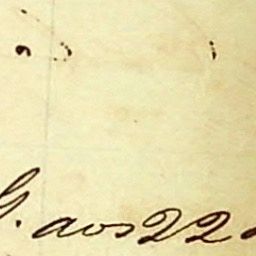 G. aos 22